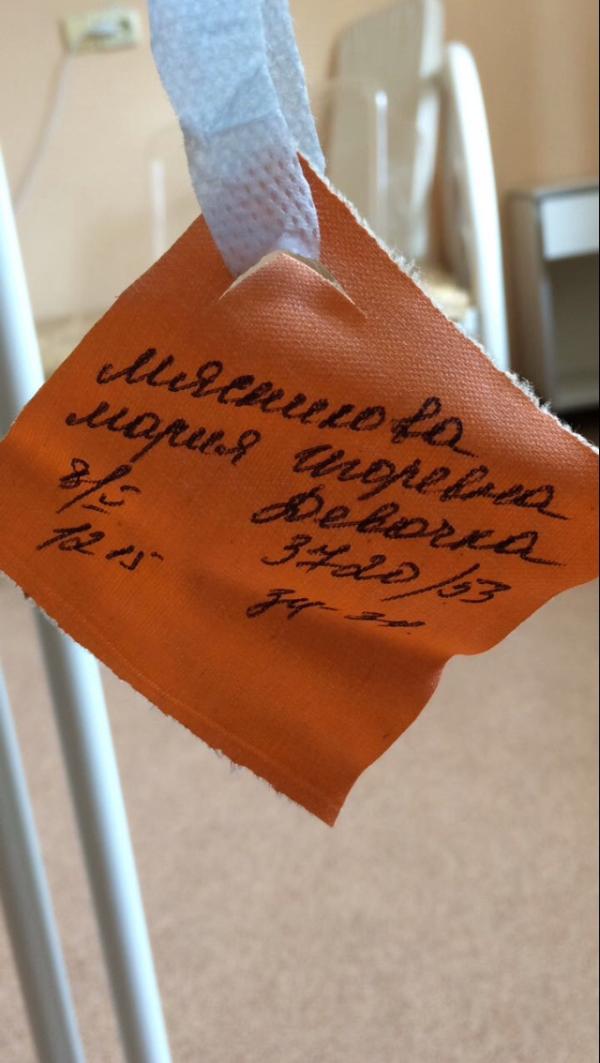 Мясникова
Мария Игоревна
8/V Девочка
12 15 3720/53
34-31